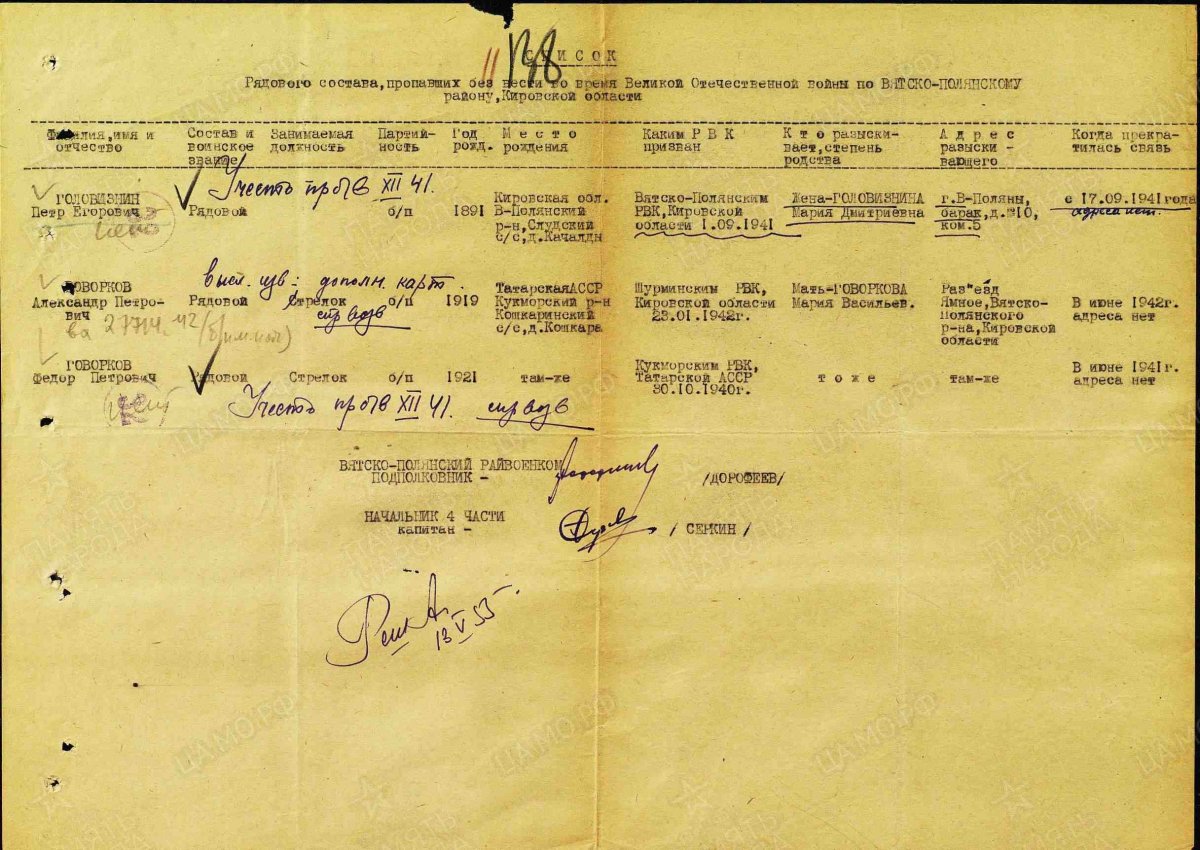 11 138
СПИСОК
Рядового состава,пропавших без вести во время Великой Отечественной войны по ВЯТСКО-ПОЛЯНСКОМУ
району,Кировской области
Фамилия,имя и отчество
Состав и воинское звание
Занимаемая должность
Партий-ность
Год рожд.
Место рождения
Каким РВК призван
Кто разыски-вает,степень родства
Адрес разыски-вающего
Когда прекра-тилась связь
Учесть пр б/в XII 41.
ГОЛОВИЗНИН
Петр Егорович
Рядовой
б/п
1891
Кировская обл.
В-Полянский
р-н,Слудский
с/с,д.Качалды
Вятско-Полянским
РВК,Кировской
области 1.09.1941
Жена-ГОЛОВИЗНИНА
Мария Дмитриевна
г.В-Поляны,
барак,д.№10,
ком.5
с 17.09.1941года
адреса нет.
высл. изв: дополн. карт.
ГОВОРКОВ
Александр Петро-
вич
Рядовой
Стрелок
б/п
1919
ТатарскаяАССР
Кукморский р-н
Кошкаринский
с/с,д.Кошкара
Шурминским РВК,
Кировской области
23.01.1942г.
Мать-ГОВОРКОВА
Мария Васильев.
Раз"езд
Ямное,Вятско-
Полянского
р-на,Кировской
области
В июне 1942г.
адреса нет
ГОВОРКОВ
Федор Петрович
Рядовой
Стрелок
б/п
1921
там-же
Кукморским РВК,
Татарской АССР
30.10.1940г.
тоже
там-же
В июне 1941г.
адреса нет
Учесть пр б/в XII 41.
ВЯТСКО-ПОЛЯНСКИЙ РАЙВОЕНКОМ
ПОДПОЛКОВНИК -
/ДОРОФЕЕВ/
НАЧАЛЬНИК 4 ЧАСТИ
капитан -
/ СЕРКИН/
13 V 55